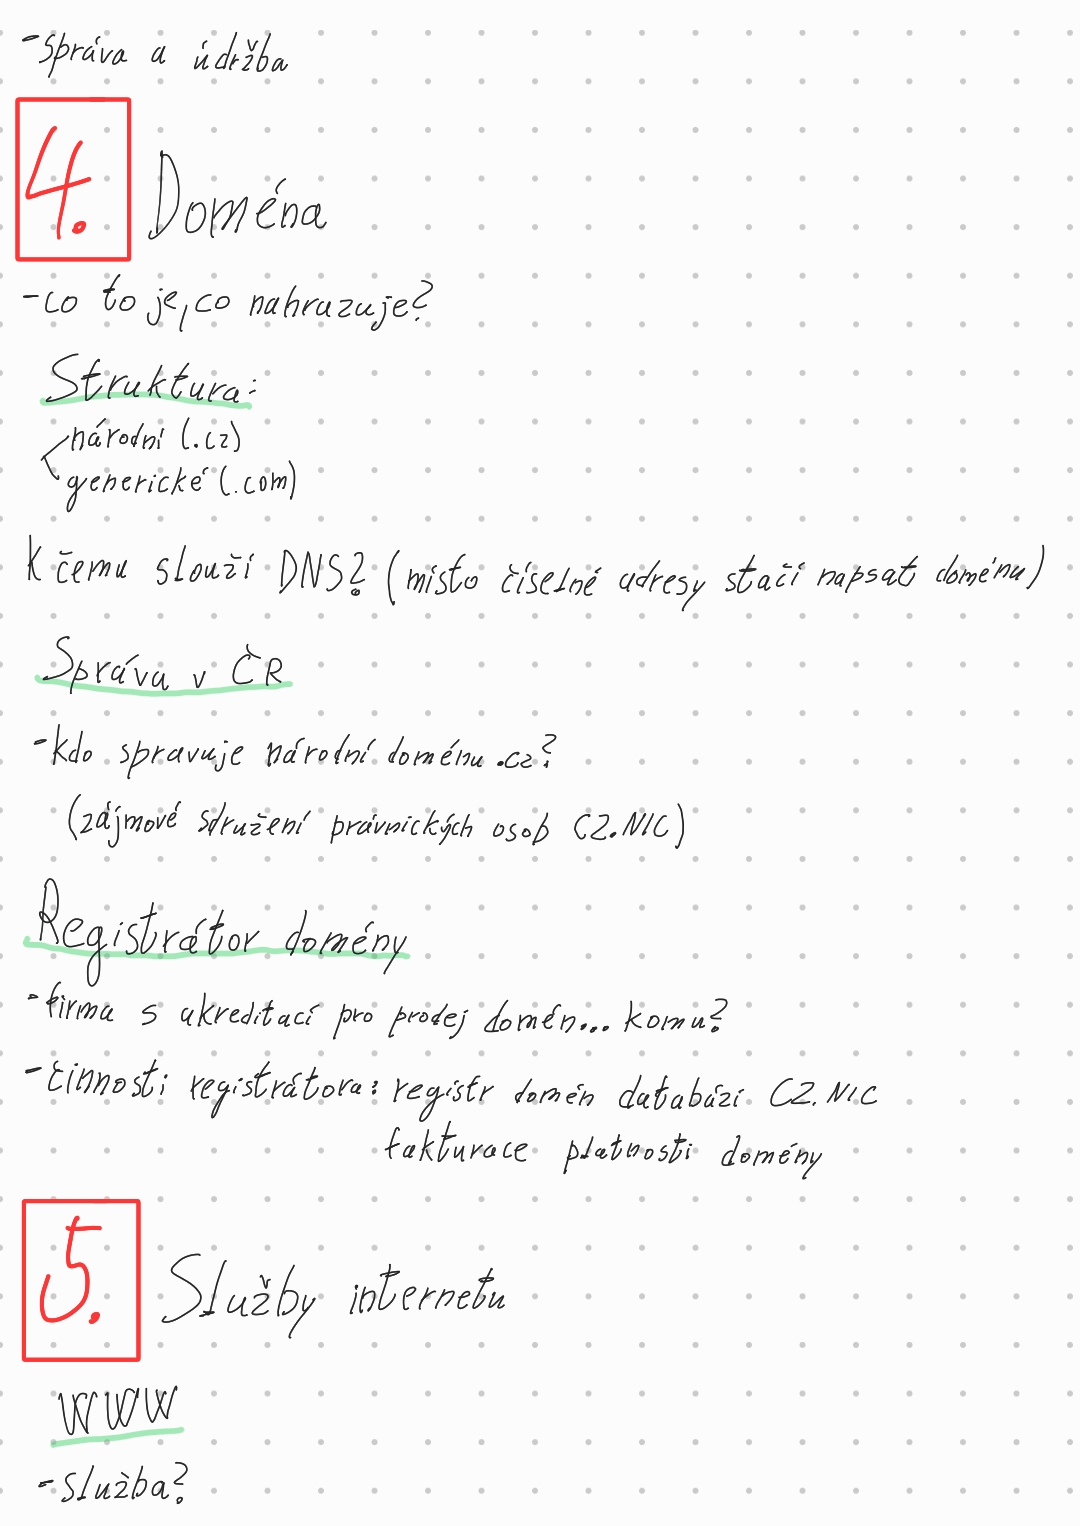 -správa a údržba
4. Doména
-co to je, co nahrazuje?
Struktura:
národní (.cz)
generické (.com)
K čemu slouží DNS? (místo číselné adresy stačí napsat doménu)
Správa v ČR
-kdo spravuje národní doménu .cz?
(zájmové sdružení právnických osob CZ.NIC)
Registrátor domény
-firma s akreditací pro prodej domén... komu?
-činnosti registrátora: registr domén databází CZ.NIC
fakturace platnosti domény
5. Služby internetu
WWW
-služba?